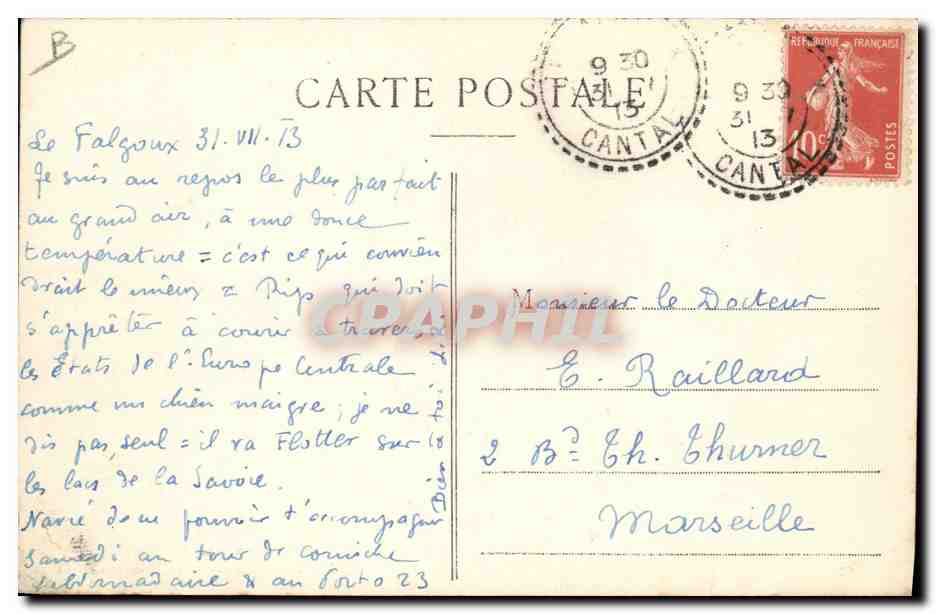 B
CARTE POSTALE
9 30
31
13
CANTAL
9 30
31
13
CANTAL
REPUBLIQUE FRANÇAISE
10c
POSTES
Le Falgoux 31-VII-13
Je suis au repos le plus parfait
au grand air, à une douce
température = c'est ce qui convien
drait le mieux = Rips qui doit
s'apprêter à courir à travers
les États de l'Europe Centrale
comme un chien maigre; je ne
dis pas, seul = il va Flotter sur
les lacs de la Savoie.
Navré de ne pouvoir t'accompagner
Samedi au tour de corniche
hebdomadaire & au Porto 23
Bien à toi
Monsieur le Docteur
E. Raillard
2 Bd Th. Thurner
Marseille
CPAPHIL